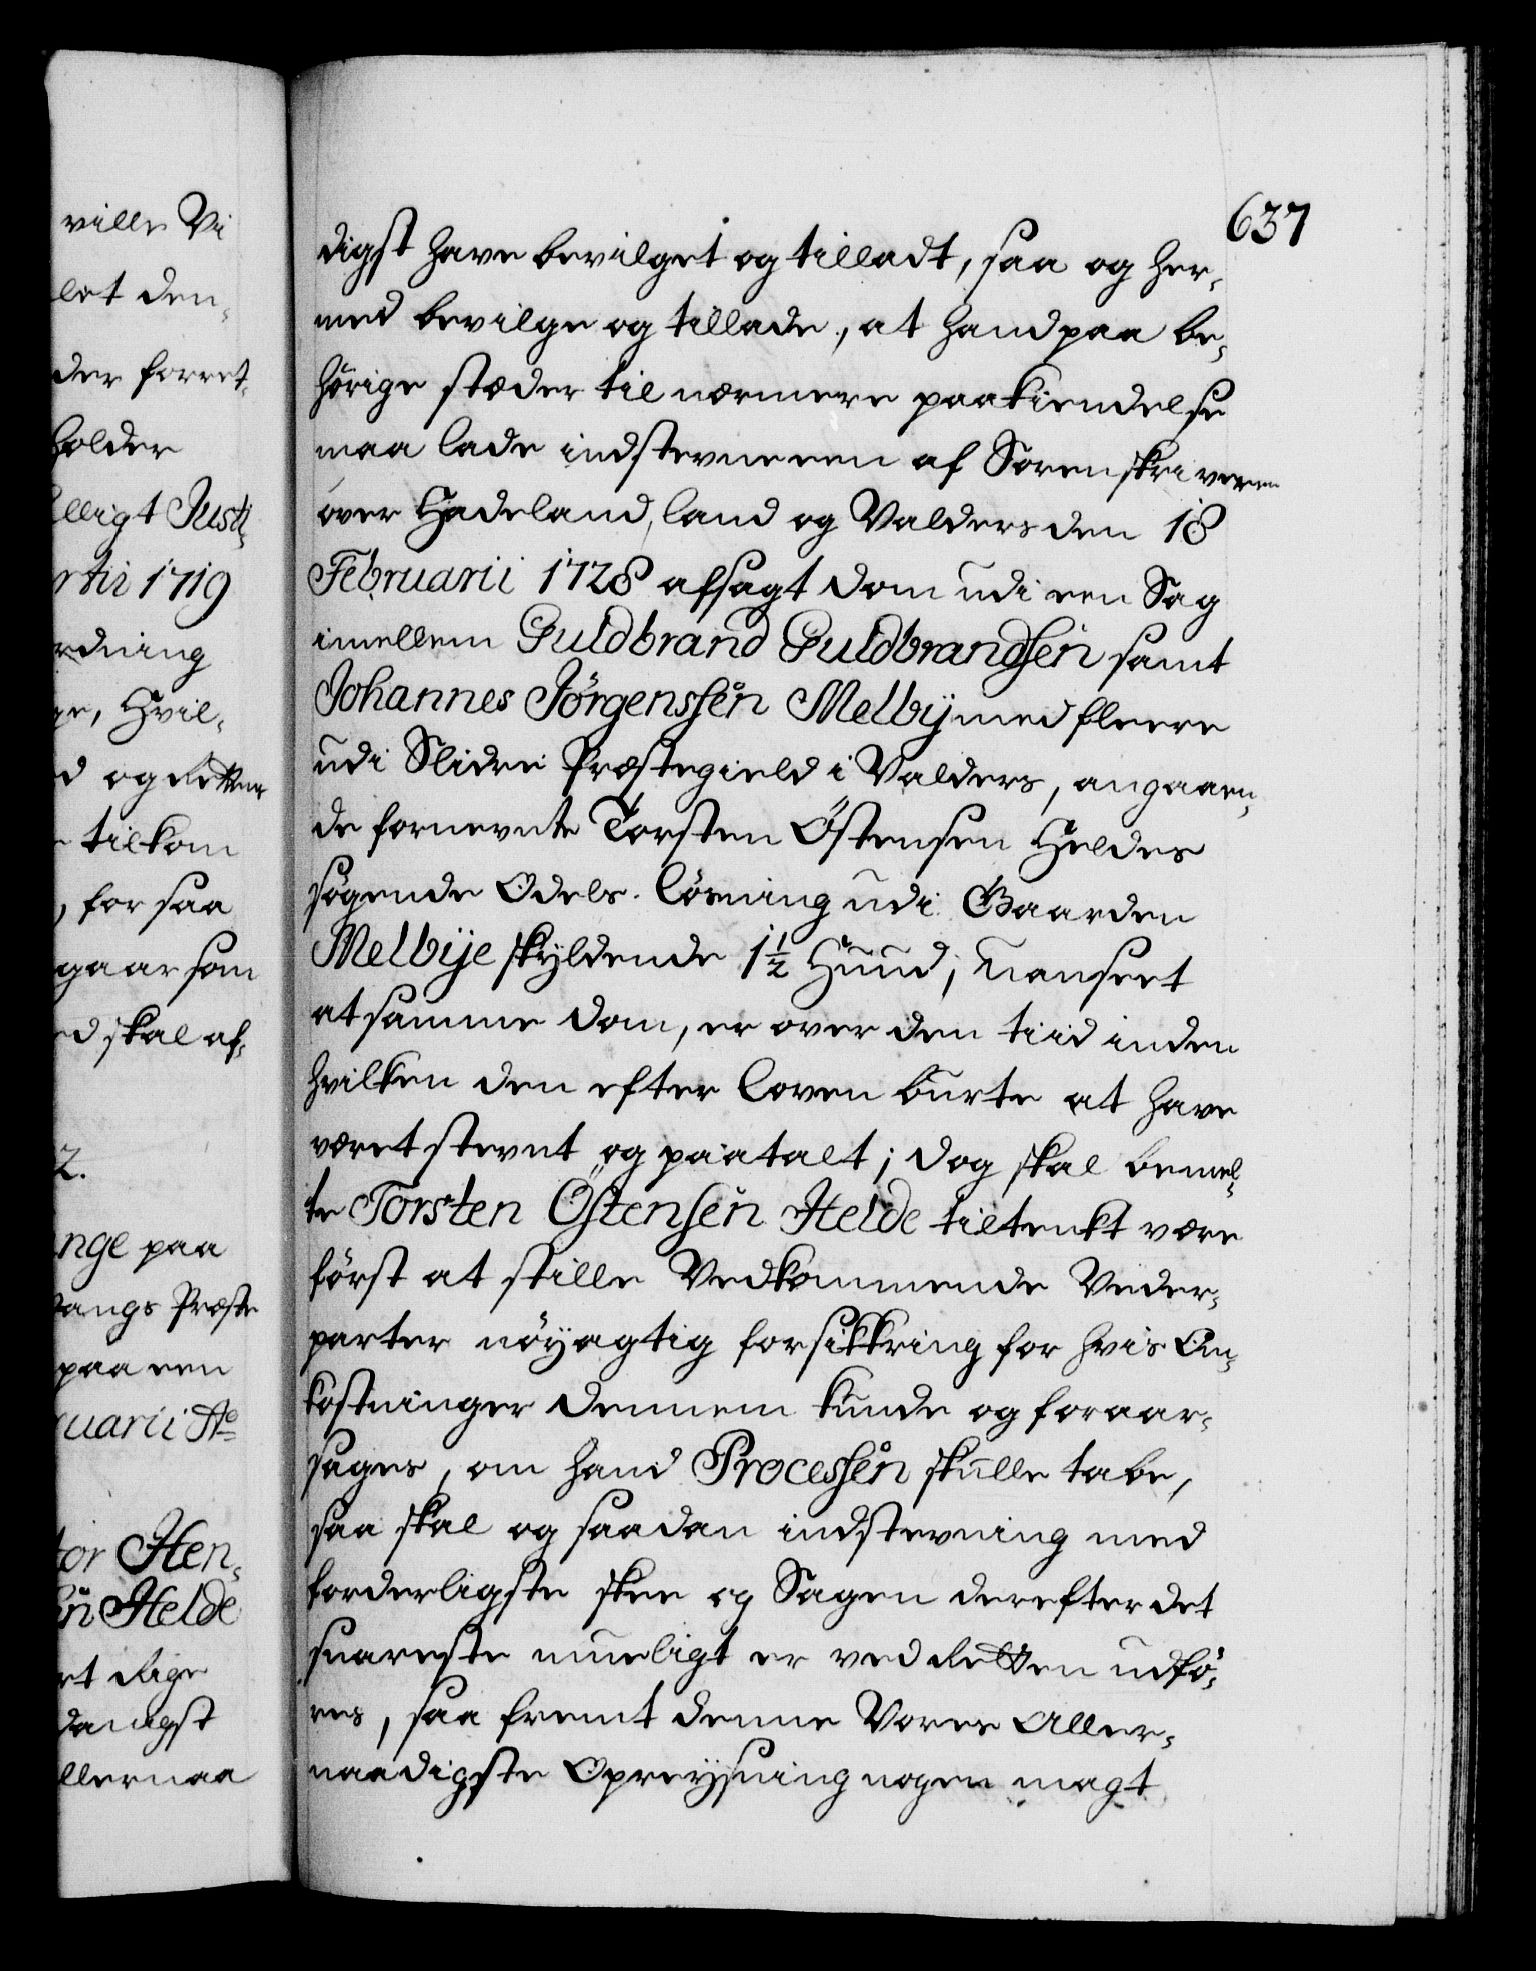 ville Vi
let den,
der forret,
holder
lligt Justi,
rtii 1719
rdning
ge, Hvil,
d og Retten
tilkom
, for saa
gaar som
ed skal af,
2.
nge paa
vangs Præste
paa een
ruarii Ao
tor Hen,
en Helde
et Rige
danigst
llernaa
637
digst have bevilget og tilladt, saa og her,
med bevilge og tillade, at hand paa be,
hörige stæder til nærmere paakiendelse
maa lade indstevne een af Sorenskriveren
over Hadeland, land og Valders den 18
Februarii 1728 afsagt dom udi een Sag
imellem Guldbrand Guldbrandsen samt
Johannes Jörgenssen Melbij med fleere
udi Slidre Præstegield i Valders, angaaen,
de fornevnte Torsten Östensen Heldes
sögende Odels-lösning udi Gaarden
Melbije skyldende 1½ Huud; uanseet
at samme dom, er over den tiid inden
hvilken den efter loven burte at have
været stevnt og paatalt; dog skal bemel,
te Torsten Östensen Helde tiltenkt være
först at stille Vedkommende Veder,
parter nöyagtig forsikkring for hvis Om,
kostninger dennem kunde og foraar,
sages, om hand Processen skulle tabe,
saa skal og saadan indstevning med
forderligste skee og Sagen derefter det
snareste mueligt er ved Retten udfö,
res, saa fremt denne Vores Aller,
naadigste Opreysning nogen magt